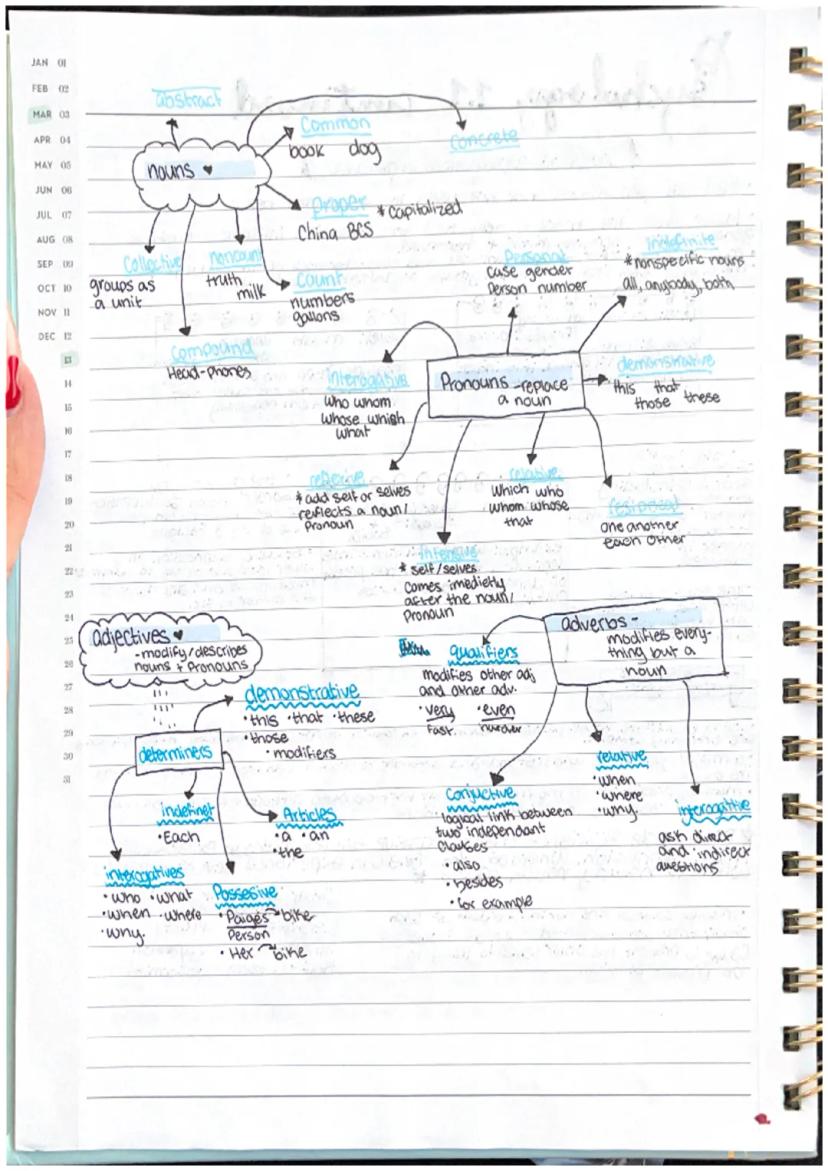 JAN 01
FEB 02
MAR 03
APR 04
MAY 05
JUN 06
JUL 07
AUG 08
SEP 09
OCT 10
NOV 11
DEC 12
13
14
15
16
17
18
19
20
21
22
23
24
25
26
27
28
29
30
31
abstract
nouns ♥
Common
book dog
Concrete
Proper *Capitalized
China BCS
Collective
groups as
a unit
noncount
truth
milk
Count
numbers
gallons
Compound
Head-phones
Pronouns -replace
a noun
Personal
Case gender
Person number
indefinite
*nonspecific nouns
all, anybody, both
demonstrative
this that
those these
interogative
Who whom
whose which
what
reflexive
*add self or selves
reflects a noun/
Pronoun
relative
Which who
whom whose
that
reciprocal
one another
each other
intensive
* self/selves
Comes imedietly
after the noun/
Pronoun
adjectives ♥
-modify/describes
nouns + Pronouns
determiners
demonstrative
•this •that •these
•those
•modifiers
indefinet
•Each
Articles
•a •an
•the
interogatives
•who •what
•when •where
•why.
Possesive
•Paiges bike
Person
•Her bike
adverbs -
modifies every-
thing but a
noun
qualifiers
modifies other adj
and other adv.
•very •even
fast
Conjuctive
logical link between
two independant
clauses
•also
•besides
•for example
relative
•when
•where
•why.
interogitive
ask direct
and indirect
questions